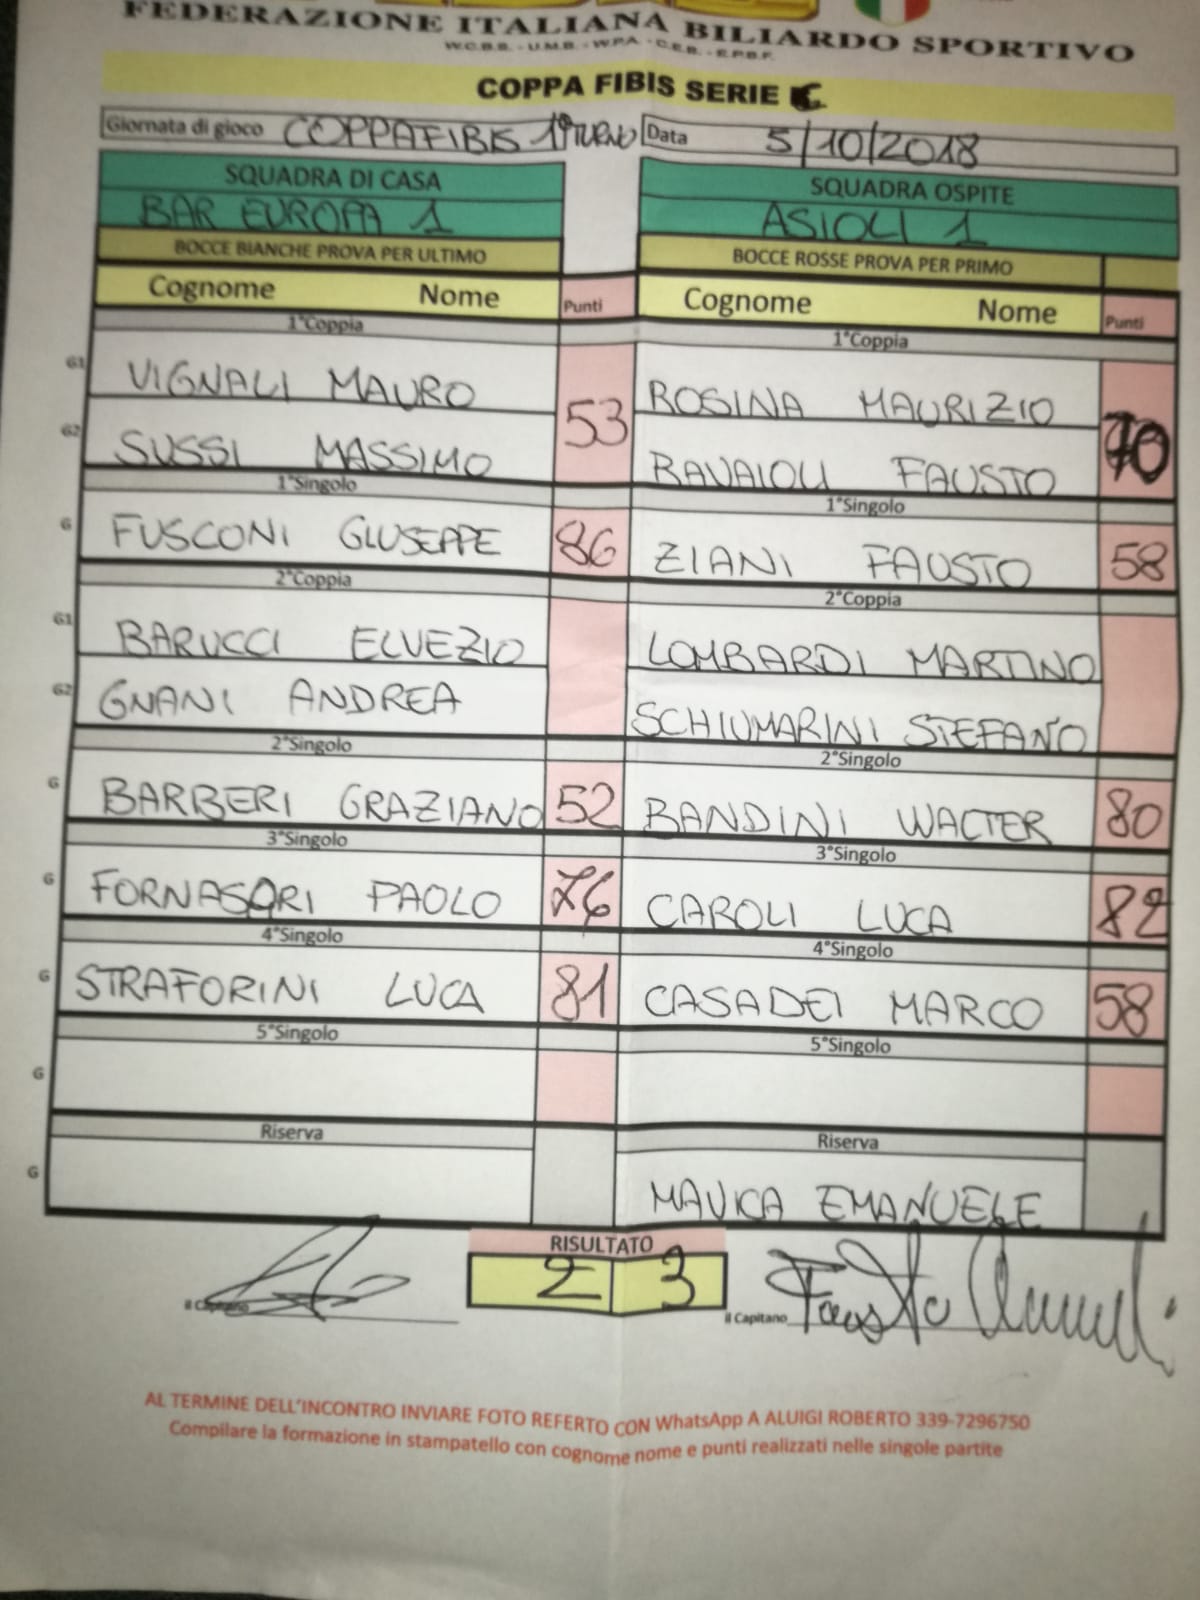 FEDERAZIONE ITALIANA BILIARDO SPORTIVO
W.C.B.S. - U.M.B. - W.P.A. - C.E.B. - E.P.B.F.
COPPA FIBIS SERIE C
Giornata di gioco COPPAFIBIS 1° TURNO Data 5/10/2018
SQUADRA DI CASA SQUADRA OSPITE
BAR EUROPA 1 ASIOLI 1
BOCCE BIANCHE PROVA PER ULTIMO BOCCE ROSSE PROVA PER PRIMO
Cognome Nome Punti Cognome Nome Punti
1°Coppia 1°Coppia
G1 VIGNALI MAURO 53 ROSINA MAURIZIO 70
G2 SUSSI MASSIMO RAVAIOLI FAUSTO
1°Singolo 1°Singolo
G FUSCONI GIUSEPPE 86 ZIANI FAUSTO 58
2°Coppia 2°Coppia
G1 BARUCCI ELVEZIO LOMBARDI MARTINO
G2 GNANI ANDREA SCHIUMARINI STEFANO
2°Singolo 2°Singolo
G BARBERI GRAZIANO 52 BANDINI WALTER 80
3°Singolo 3°Singolo
G FORNASARI PAOLO 76 CAROLI LUCA 82
4°Singolo 4°Singolo
G STRAFORINI LUCA 81 CASADEI MARCO 58
5°Singolo 5°Singolo
G
Riserva Riserva
G EMANUELE
RISULTATO
2 3
il Capitano il Capitano Fausto
AL TERMINE DELL'INCONTRO INVIARE FOTO REFERTO CON WhatsApp A ALUIGI ROBERTO 339-7296750
Compilare la formazione in stampatello con cognome nome e punti realizzati nelle singole partite